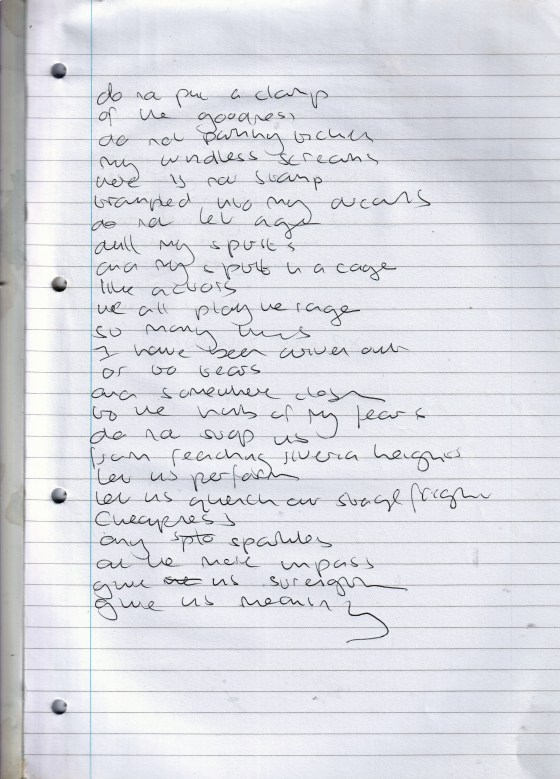 do not put a clamp
of the goodness
do not
my windless screams
here is not stamp
trampled into my dreams
do not let age
dull my spirits
and my spirit in a cage
like actors
we all play the rage
so many times
I have been driven out
or to tears
and somewhere close
to the of my fears
do not stop us
from reaching heights
let us perform
let us quench our stage fright
Cheapness
any sparkles
at the impass
give us strength
give us meaning